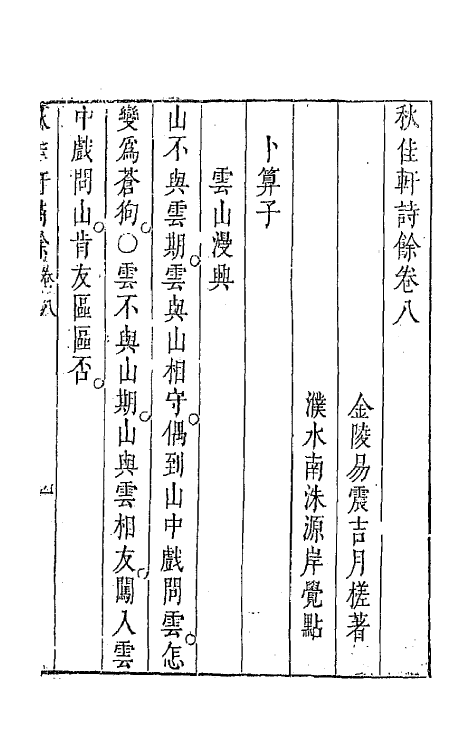 秋佳軒詩餘卷八
金陵易震吉月槎著
濮水南洙源岸覺點
卜算子
雲山漫興
山不與雲期雲與山相守偶到山中戲問雲怎
變爲蒼狗〇雲不與山期山與雲相友闖入雲
中戲問山肯友區區否
秋佳軒詩餘卷八